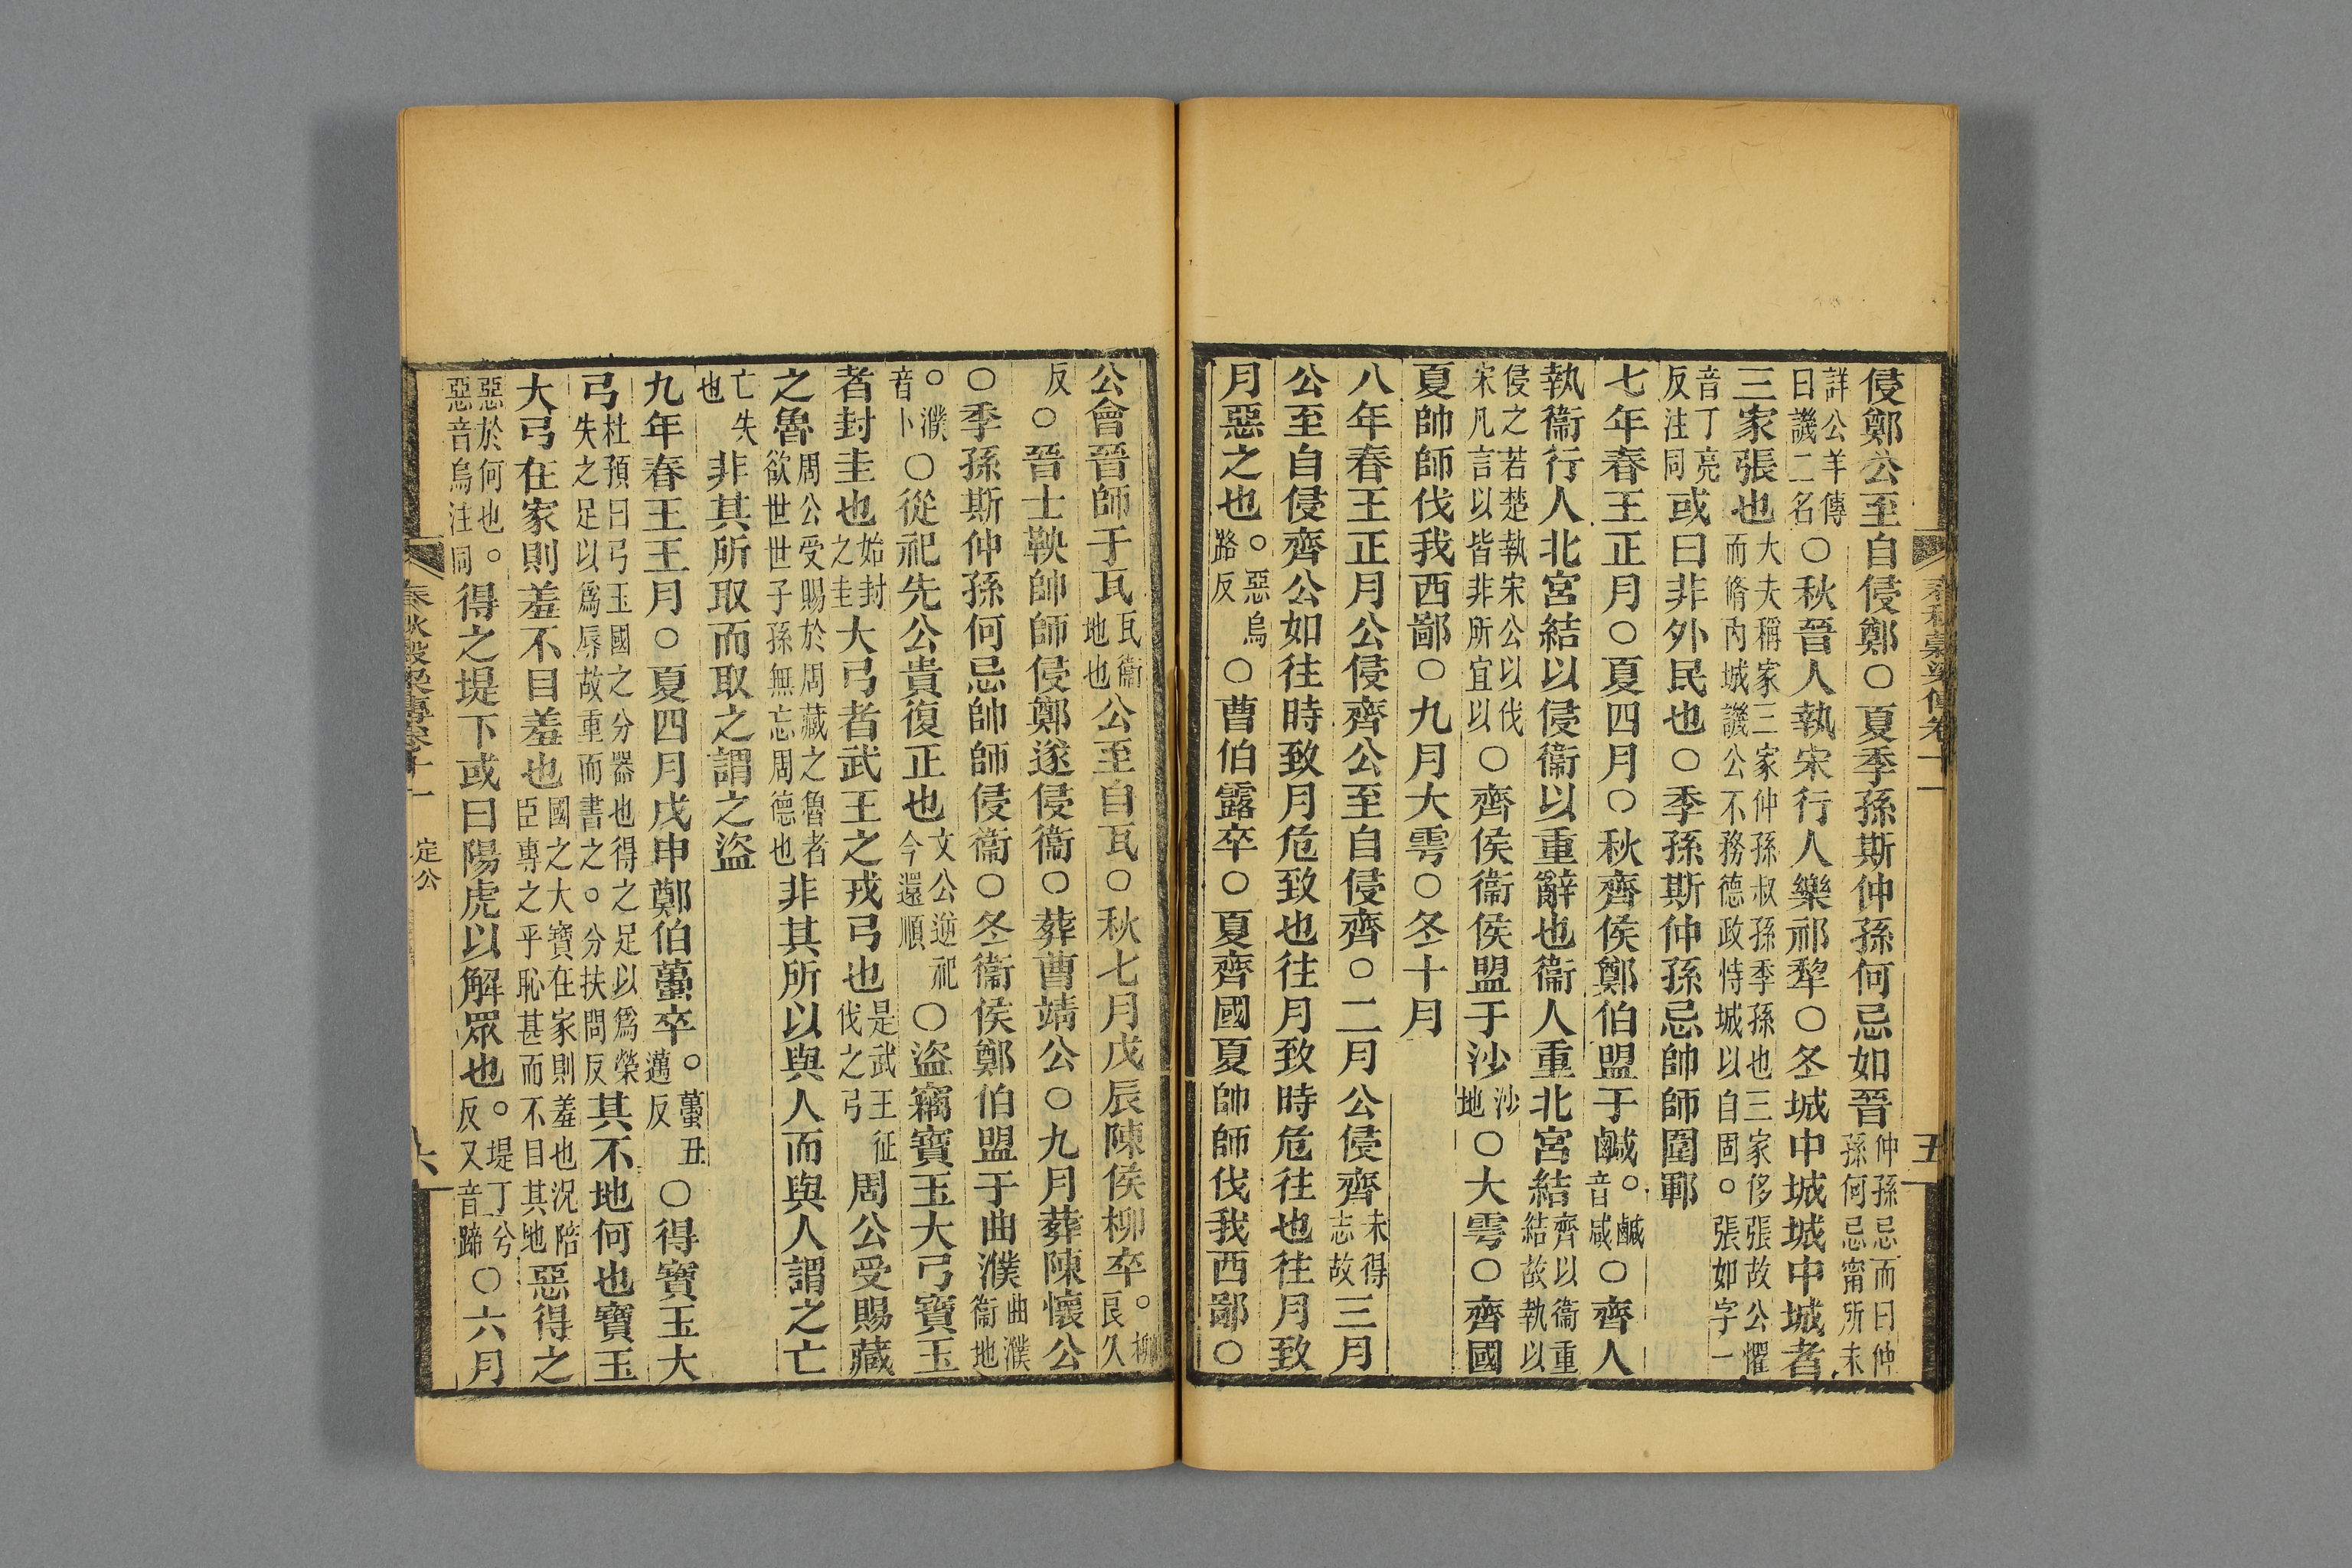 春秋穀梁傳卷十一
五
侵鄭公至自侵鄭○夏季孫斯仲孫何忌如晉仲孫忌而曰仲孫何忌甯所未
詳公羊傳曰譏二名○秋晉人執宋行人樂祁犂○冬城中城城中城者
三家張也大夫稱家三家仲孫叔孫季孫也三家侈張故公懼而脩內城譏公不務德政恃城以自固。張如字一
音丁亮反注同或曰非外民也○季孫斯仲孫忌帥師圍鄆
七年春王正月○夏四月○秋齊侯鄭伯盟于鹹。鹹音咸○齊人
執衞行人北宮結以侵衞以重辭也衞人重北宮結齊以衞重結故執以
侵之若楚執宋公以伐宋凡言以皆非所宜以○齊侯衞侯盟于沙沙地○大雩○齊國
夏帥師伐我西鄙○九月大雩○冬十月
八年春王正月公侵齊公至自侵齊○二月公侵齊未得志故三月
公至自侵齊公如往時致月危致也往月致時危往也往月致
月惡之也。惡烏路反○曹伯露卒○夏齊國夏帥師伐我西鄙○
公會晉師于瓦瓦衞地也公至自瓦○秋七月戊辰陳侯柳卒。柳良久
反○晉士鞅帥師侵鄭遂侵衞○葬曹靖公○九月葬陳懷公
○季孫斯仲孫何忌帥師侵衞○冬衞侯鄭伯盟于曲濮曲濮衞地
。濮音卜○從祀先公貴復正也文公逆祀今還順○盜竊寶玉大弓寶玉
者封圭也始封之圭大弓者武王之戎弓也是武王征伐之弓周公受賜藏
之魯周公受賜於周藏之魯者欲世世子孫無忘周德也非其所以與人而與人謂之亡
亡失也非其所取而取之謂之盜
九年春王王月○夏四月戊申鄭伯蠆卒。蠆丑邁反○得寶玉大
弓杜預曰弓玉國之分器也得之足以爲榮失之足以爲辱故重而書之。分扶問反其不地何也寶玉
大弓在家則羞不目羞也國之大寶在家則羞也況陪臣專之乎恥甚而不目其地惡得之
惡於何也。惡音烏注同得之堤下或曰陽虎以解眾也。堤丁兮反又音蹄○六月
春秋穀梁傳卷十一
定公
六